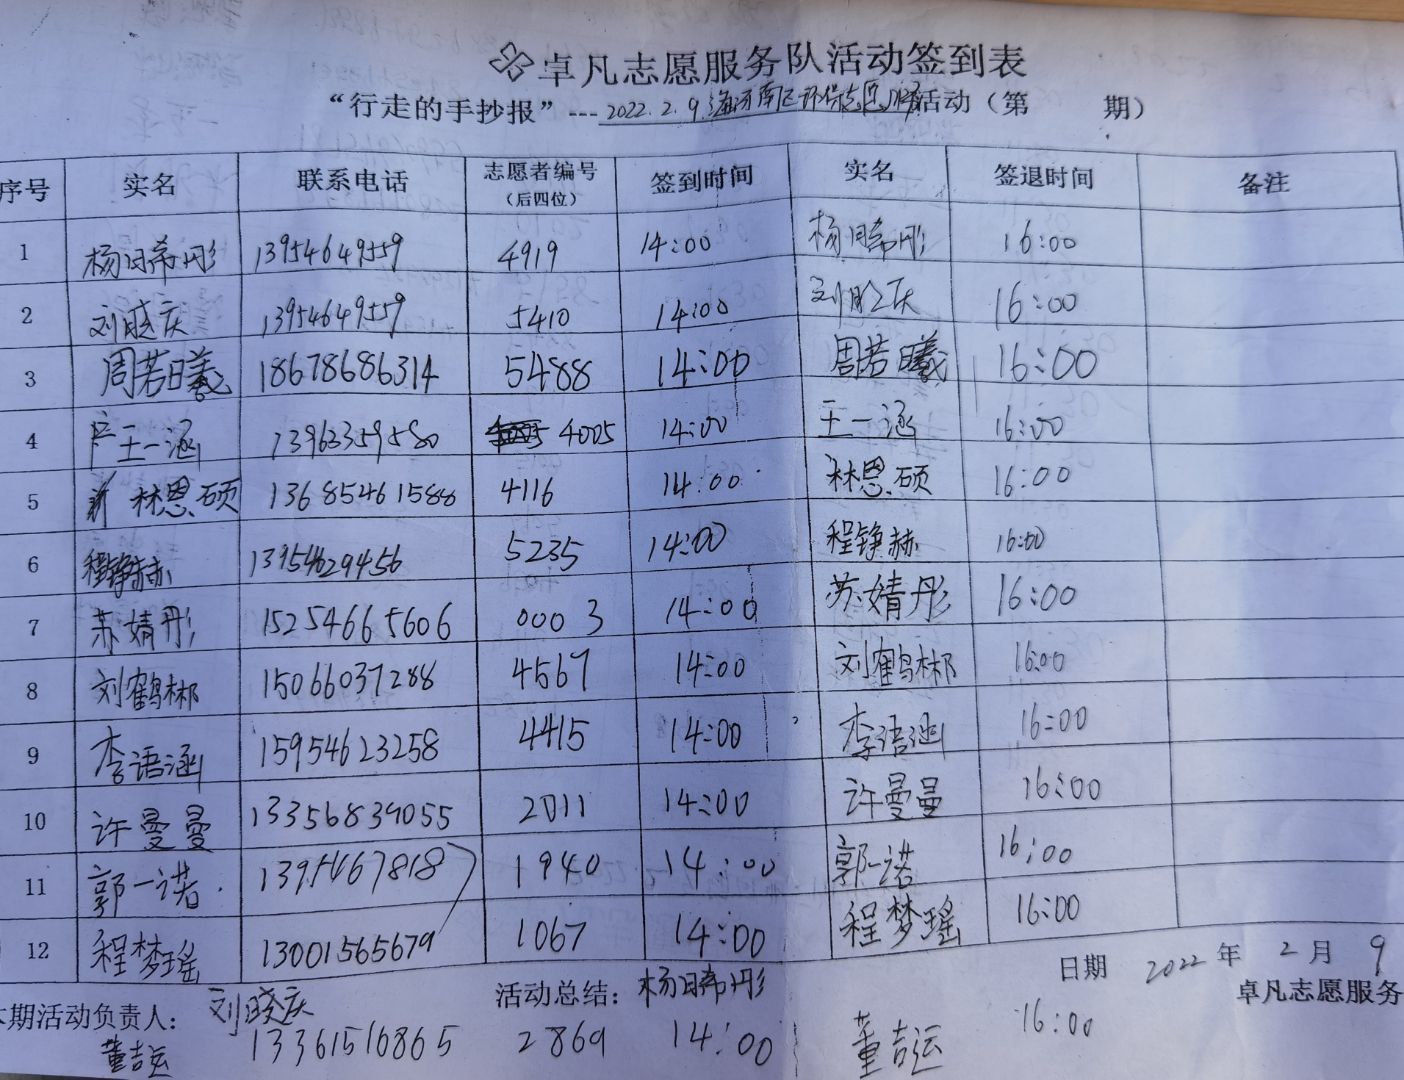 卓凡志愿服务队活动签到表
“行走的手抄报”---2022.2.9 活动（第 期）
序号 实名 联系电话 志愿者编号（后四位） 签到时间 实名 签退时间 备注
1 杨晞彤 13954649559 4919 14:00 杨晞彤 16:00
2 刘晓庆 13954649559 5410 14:00 刘晓庆 16:00
3 周若曦 18678686314 5488 14:00 周若曦 16:00
4 王一涵 13963359580 4005 14:00 王一涵 16:00
5 林恩硕 13685461588 4116 14:00 林恩硕 16:00
6 程铮赫 13954629456 5235 14:00 程铮赫 16:00
7 苏婧彤 15254665606 0003 14:00 苏婧彤 16:00
8 刘鹤彬 15066037288 4567 14:00 刘鹤彬 16:00
9 李语涵 15954623258 4415 14:00 李语涵 16:00
10 许曼曼 13356839055 2011 14:00 许曼曼 16:00
11 郭一诺 1395467818 1940 14:00 郭一诺 16:00
12 程梦瑶 13001565679 1067 14:00 程梦瑶 16:00
日期 2022年 2月 9
本期活动负责人：刘晓庆 活动总结：杨晞彤 卓凡志愿服务
董吉运 13361516865 2869 14:00 董吉运 16:00